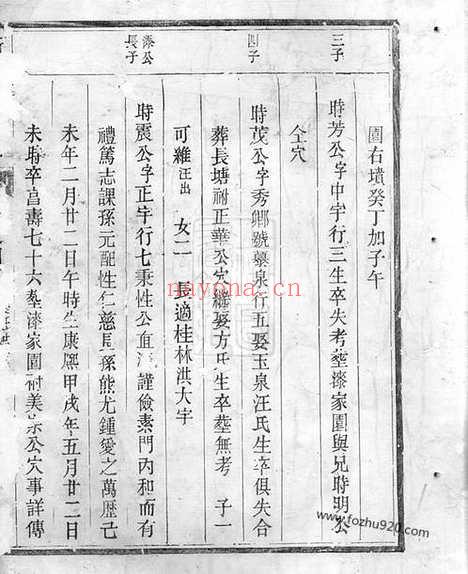 三子
四子
漆公
長子
園右墳癸丁加子午
時芳公字中宇行三生卒失考塟漆家園與兄時明公
仝穴
時茂公字秀卿號蘖泉行五娶玉泉汪氏生卒俱失合
葬長塘祔正華公穴繼娶方氏生卒塟無考 子一
可維汪出 女二 長適桂林洪大宇
時震公字正宇行七秉性公直 謹儉素門內和而有
禮篤志課孫元配性仁慈長孫熊尤鍾愛之萬歷己
未年二月廿二日午時生康熙甲戌年五月廿二日
未時卒皀壽七十六塟漆家園祔美 公穴事詳傳
nayona.cn
www.fozhu920.com